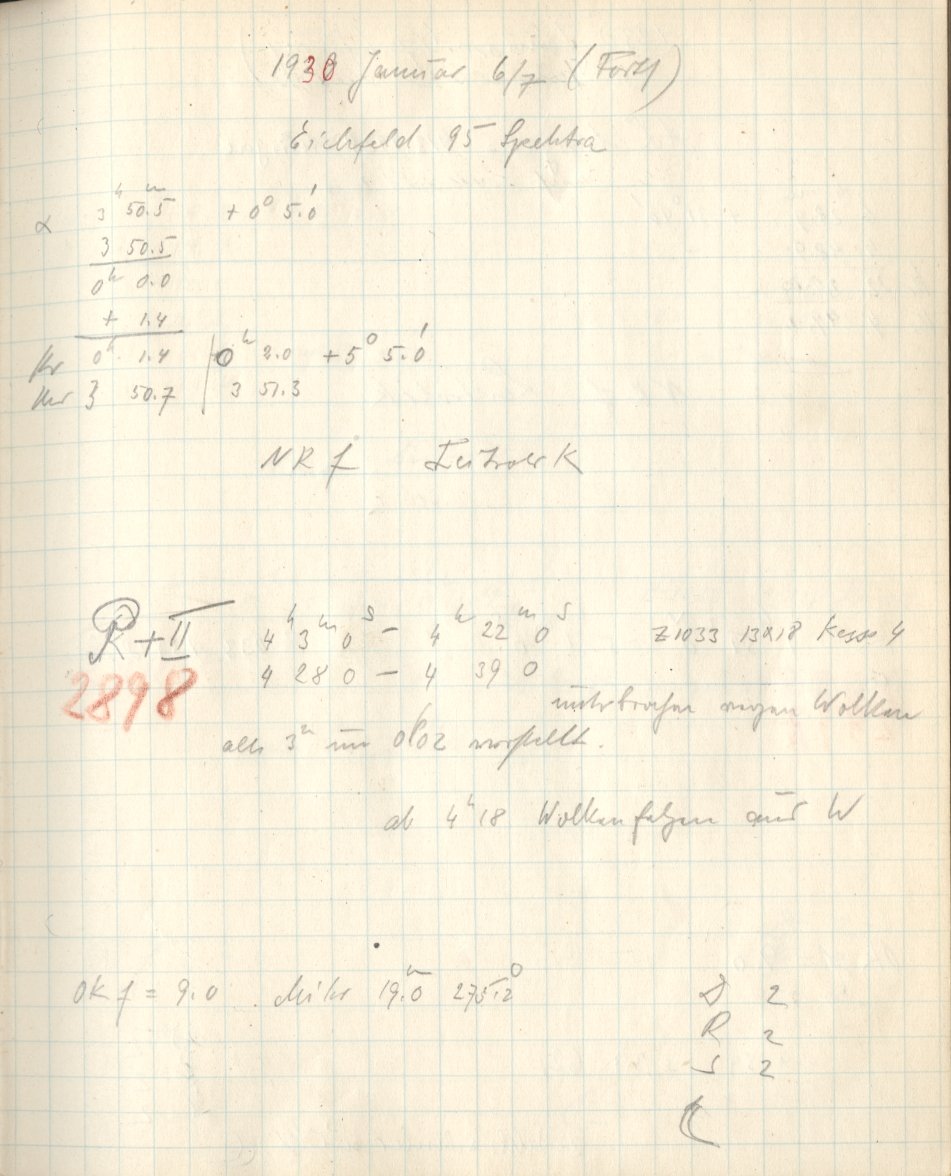 1930 Januar 6/7 (Forts)
Eichfeld 95 Spektra
α 3ʰ 50.5ᵐ + 0° 5.0'
3 50.5
0ʰ 0.0
+ 1.4
0ʰ 1.4 | 0ʰ 2.0 + 5° 5.0'
Uhr 3 50.7 | 3 51.3
NR f
R + II 4ʰ 3ᵐ 0ˢ – 4ʰ 22ᵐ 0ˢ Z1033 13x18 Kass 4
2898 4 28 0 – 4 39 0
unterbrochen wegen Wolken
alle 3ᵐ um 0.02 verstellt.
ab 4ʰ 18 Wolkenfetzen aus W
OK f = 9.0 Mikr 19.0 275.2°
D 2
R 2
S 2
☾